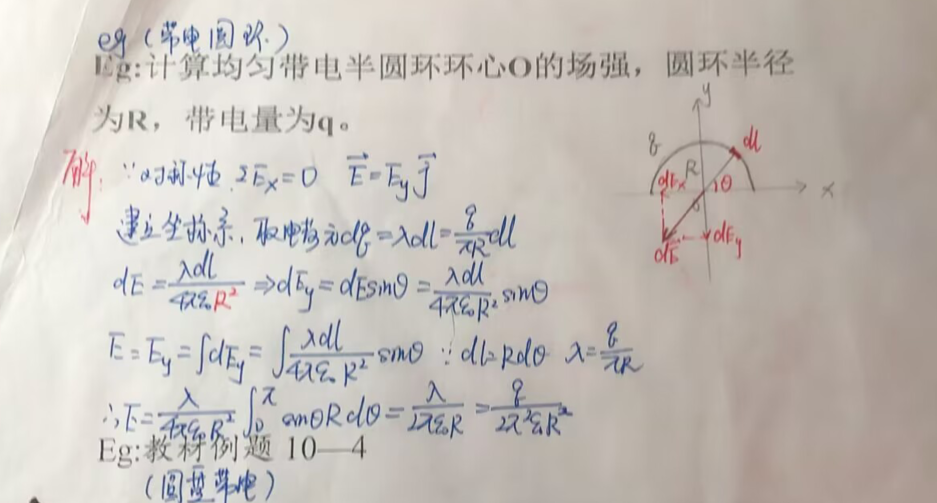 eg (带电圆环)
Eg:计算均匀带电半圆环环心O的场强，圆环半径
为R，带电量为q。
解: ∵对称性, ΣEx=0 E⃗=Ey j⃗
建立坐标系, 取电荷元dq=λdl=q/πR dl
dE=λdl/4πε₀R² ⇒dEy=dEsinθ=λdl/4πε₀R² sinθ
E=Ey=∫dEy=∫λdl/4πε₀R² sinθ ∵dl=Rdθ λ=q/πR
∴E=λ/4πε₀R² ∫₀^π sinθRdθ=λ/2πε₀R=q/2π²ε₀R²
Eg:教材例题 10—4
(圆弧带电)
y
q
R
dl
dEx
θ
x
O
dE
dEy